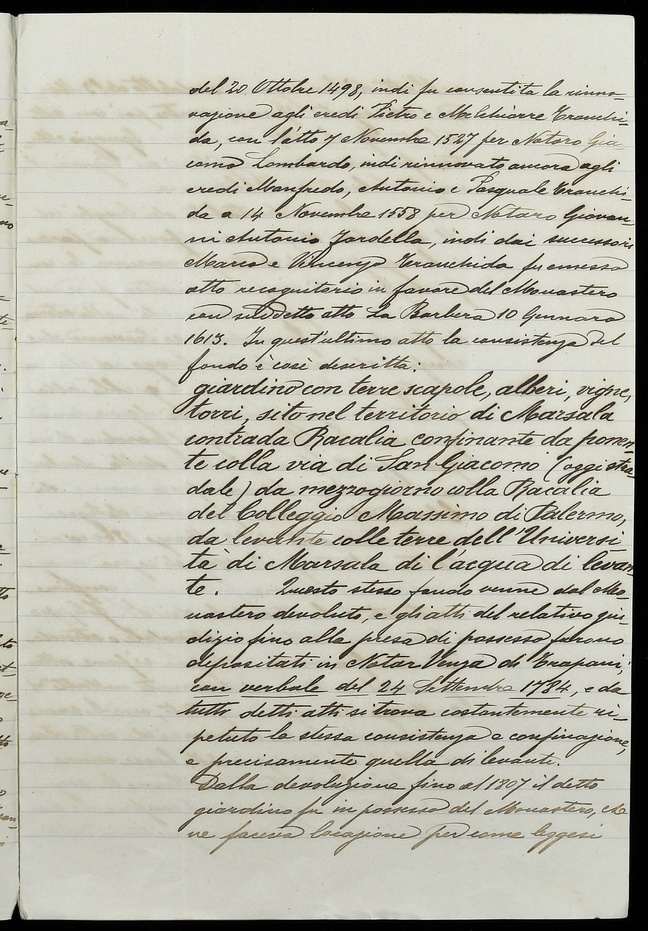 del 20 Ottobre 1498, indi fu consentita la rinno-
vazione agli eredi Pietro e Melchiorre Tranchi-
da, con l'atto 7 Novembre 1527 per Notaro Gia
como Lombardo, indi rinnovato ancora agli
eredi Manfredo, Antonio e Pasquale Tranchi-
da a 14 Novembre 1558 per Notaro Giovan-
ni Antonio Jardella, indi dai successori
Marco e Vincenzo Tranchida fu emesso
atto recognitorio in favore del Monastero
con suddetto atto La Barbera 10 Gennaro
1613. In quest'ultimo atto la consistenza del
fondo è così descritta:
giardino con terre scapole, alberi, vigne,
torri, sito nel territorio di Marsala
contrada Racalia confinante da ponen-
te colla via di San Giacomo (oggi stra
dale) da mezzogiorno colla Racalia
del Colleggio Massimo di Palermo,
da levante colle terre dell'Universi
tà di Marsala di l'acqua di levan
te. Questo stesso fondo venne dal Mo-
nastero devoluto, e gli atti del relativo giu-
dizio fino alla presa di possesso furono
depositati in Notar Venza di Trapani,
con verbale del 24 Settembre 1784, e da
tutti detti atti si trova costantemente ri-
petuto la stessa consistenza e confinazione,
e precisamente quella di levante.
Dalla devoluzione fino al 1807 il detto
giardino fu in possesso del Monastero, che
ne faceva locazione per come leggesi